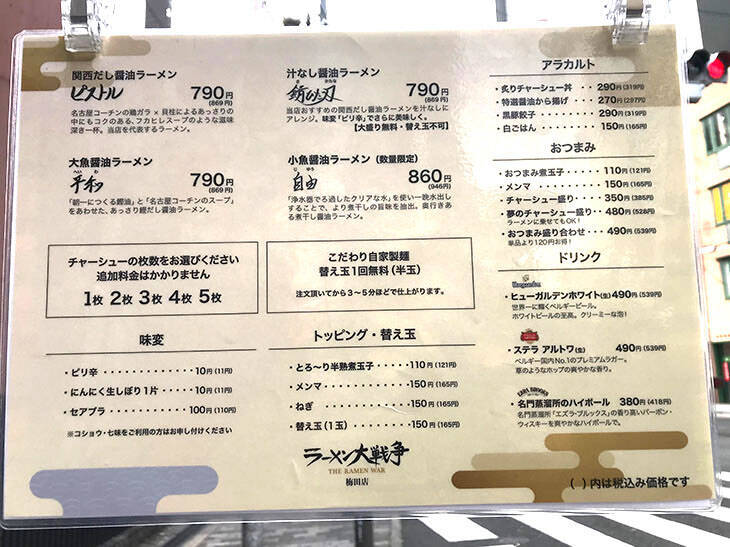 関西だし醤油ラーメン
ピストル 790円
(869円)
名古屋コーチンの鶏ガラ × 貝柱によるあっさりの
中にもコクのある、フカヒレスープのような滋味
深き一杯。当店を代表するラーメン。
汁なし醤油ラーメン
790円
(869円)
当店おすすめの関西だし醤油ラーメンを汁なしに
アレンジ。味変「ピリ辛」でさらに美味しく。
【大盛り無料・替え玉不可】
大魚醤油ラーメン
へいわ
平和 790円
(869円)
「朝一につくる鰹油」と「名古屋コーチンのスープ」
をあわせた、あっさり鰹だし醤油ラーメン。
小魚醤油ラーメン (数量限定)
じゆう
自由 860円
(946円)
「浄水器でろ過したクリアな水」を使い一晩水出し
することで、より煮干しの旨味を抽出。奥行きあ
る煮干し醤油ラーメン。
チャーシューの枚数をお選びください
追加料金はかかりません
1枚 2枚 3枚 4枚 5枚
こだわり自家製麺
替え玉1回無料(半玉)
注文頂いてから3〜5分ほどで仕上がります。
味変
・ピリ辛 ・・・・・・・・・・・・ 10円 (11円)
・にんにく生しぼり1片 ・・・・ 10円 (11円)
・セアブラ ・・・・・・・・・・ 100円 (110円)
※コショウ・七味をご利用の方はお申し付けください
トッピング・替え玉
・とろ〜り半熟煮玉子 ・・・・・ 110円 (121円)
・メンマ ・・・・・・・・・・・・ 150円 (165円)
・ねぎ ・・・・・・・・・・・・・ 150円 (165円)
・替え玉 (1玉) ・・・・・・・・・ 150円 (165円)
ラーメン大戦争
THE RAMEN WAR
梅田店
アラカルト
・炙りチャーシュー丼 ・・ 290円 (319円)
・特選醤油から揚げ ・・・ 270円 (297円)
・黒豚餃子 ・・・・・・・ 290円 (319円)
・白ごはん ・・・・・・・ 150円 (165円)
おつまみ
・おつまみ煮玉子 ・・・・ 110円 (121円)
・メンマ ・・・・・・・・ 150円 (165円)
・チャーシュー盛り ・・・ 350円 (385円)
・夢のチャーシュー盛り ・ 480円 (528円)
ラーメンに乗せてもOK!
・おつまみ盛り合わせ ・・ 490円 (539円)
単品より120円お得!
ドリンク
Hoegaarden
・ヒューガルデンホワイト(生) 490円 (539円)
世界一に輝くベルギービール。
ホワイトビールの至高。クリーミーな泡!
・ステラ アルトワ(生) 490円 (539円)
ベルギー国内No.1のプレミアムラガー。
草のようなホップの爽やかな香り。
EZRA BROOKS
・名門蒸溜所のハイボール 380円 (418円)
名門蒸溜所「エズラ・ブルックス」の香り高いバーボン・
ウィスキーを爽やかなハイボールで。
( )内は税込み価格です